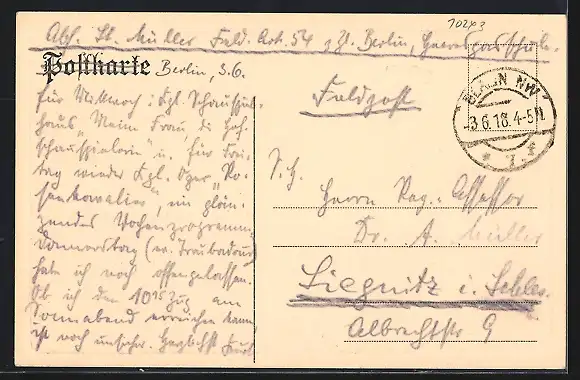 70243
Abs. Lt. Müller Feld. Art. 54 z. Zt. Berlin, Heeresgasschule.
Postkarte Berlin, 3.6.
Für Mittwoch i. Kgl. Schauspiel-
haus „Meine Frau, die Hof-
schauspielerin" u. für Frei-
tag wieder Kgl. Oper „Ro-
senkavalier", ein glän-
zendes Wochenprogramm.
Donnerstag (ev. Troubadour)
habe ich noch offengelassen.
Ob ich den 10 15 Zug am
Sonnabend erreichen kann,
ist noch unsicher. Herzlichst
Feldpost
BERLIN NW
3.6.18. 4-5N.
* 7. f
S. H.
Herrn Reg.-Assessor
Dr. A. Müller
Liegnitz i. Schles.
Albrechtstr 9